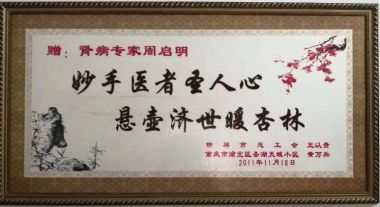 赠：肾病专家周启明
妙手医者圣人心
悬壶济世暖杏林
钟祥市总工会 王以贵
重庆市渝北区圣湖天域小区 黄万兵
2011年11月18日